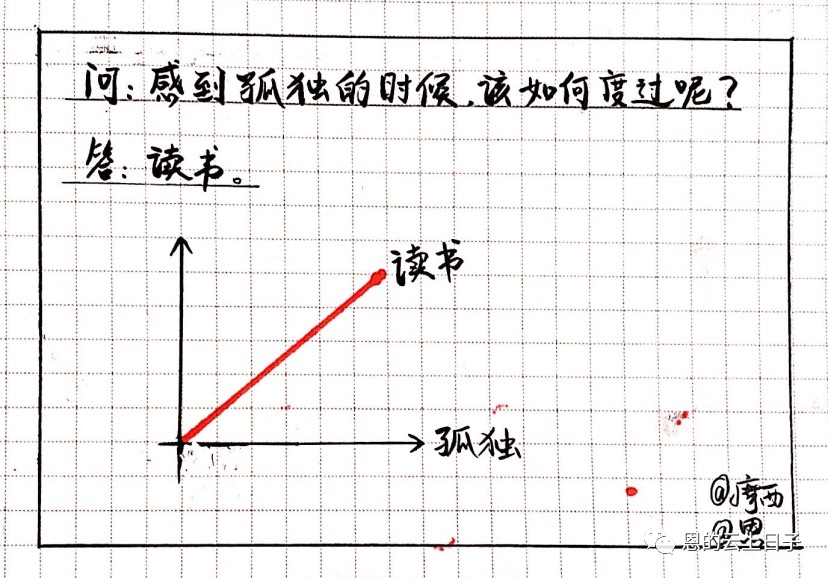 问：感到孤独的时候，该如何度过呢？
答：读书。
读书
孤独
@摩西
@恩
恩的云上日子